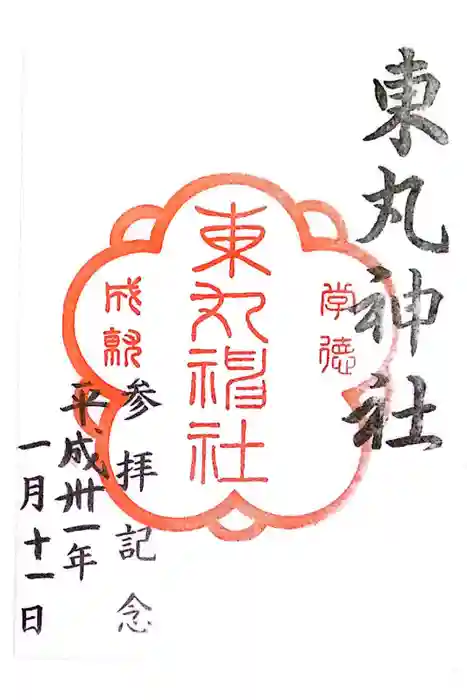 東丸神社
学徳
東丸神社
成就
参拝記念
平成卅一年
一月十一日